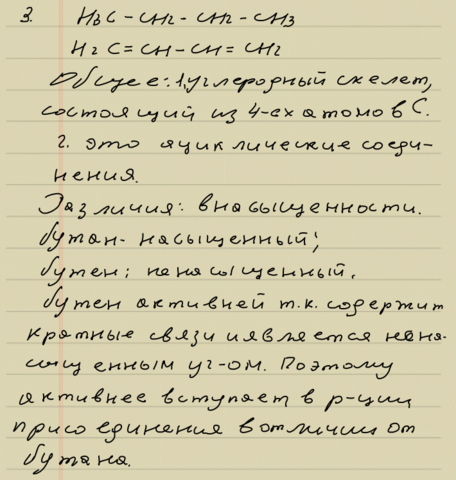 3. H3C - CH2 - CH2 - CH3
H2C = CH - CH = CH2
Общее: 1, углеродный скелет,
состоящий из 4-ех атомов С.
2. это ациклические соеди-
нения.
Различия: в насыщенности.
бутан - насыщенный;
бутен: ненасыщенный.
бутен активней т.к. содержит
кратные связи и является нена-
сыщенным уг-ом. Поэтому
активнее вступает в р-ции
присоединения в отличии от
бутана.